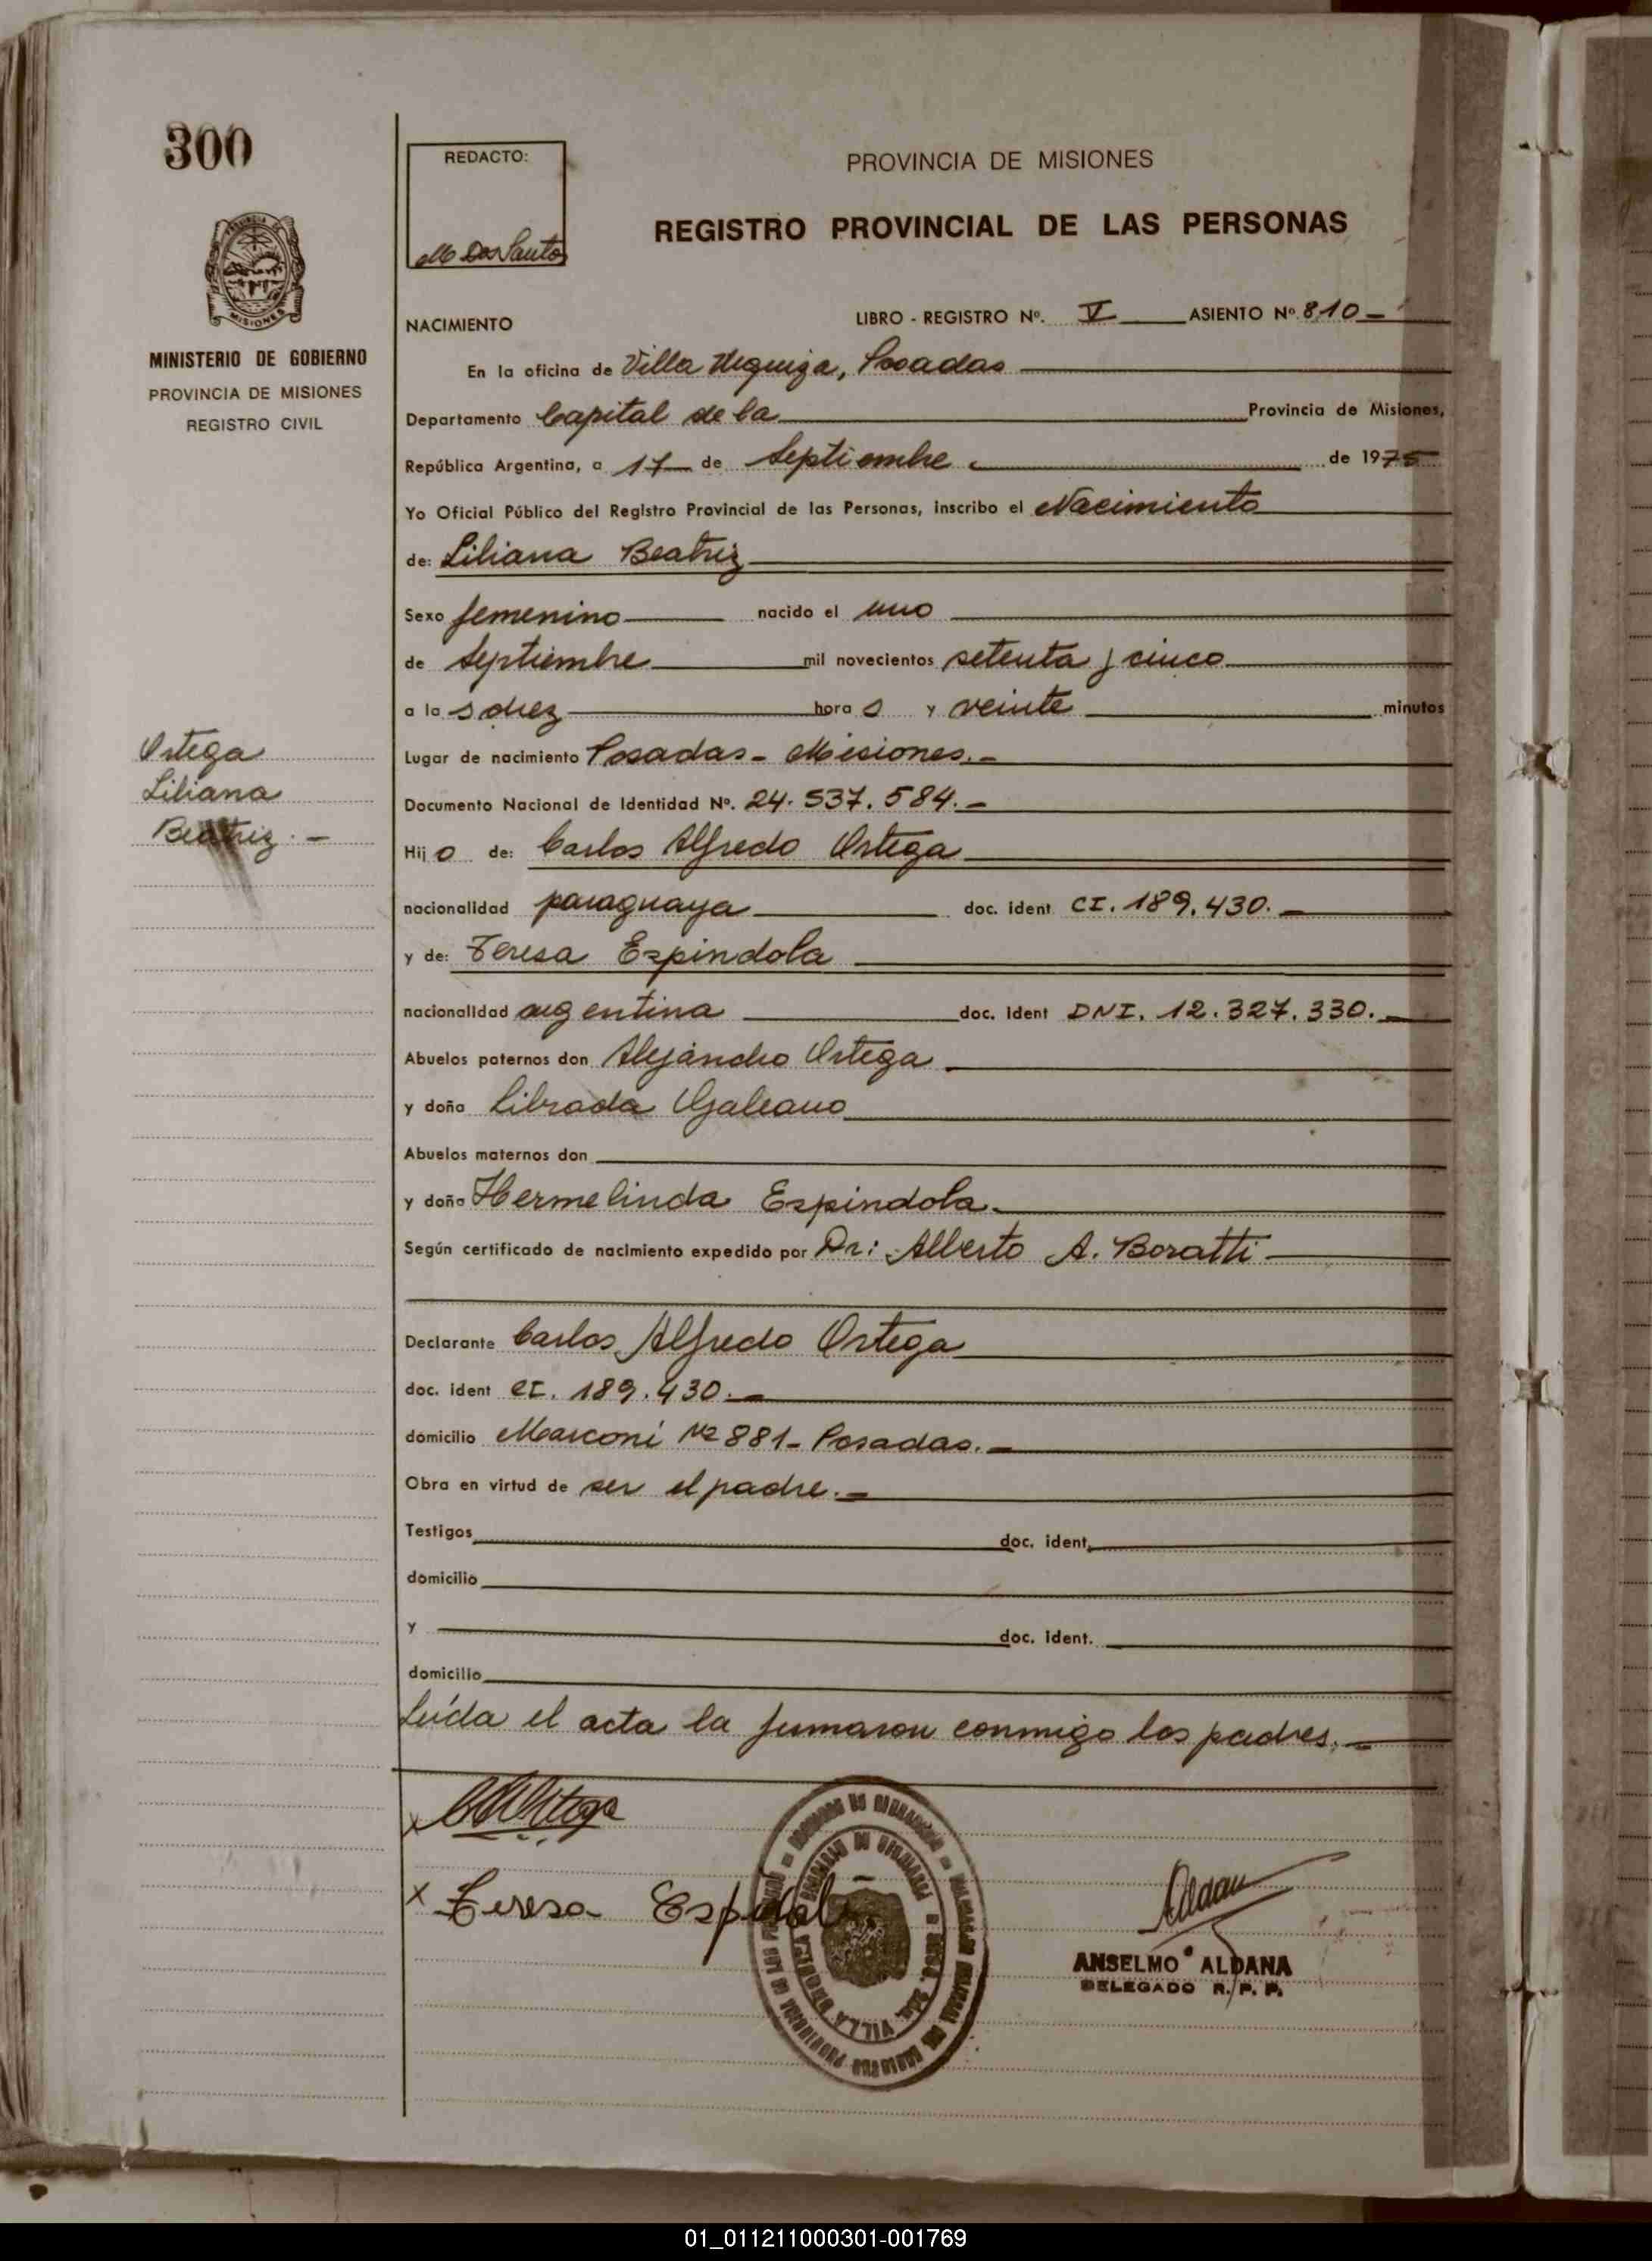 300
MISIONES
MINISTERIO DE GOBIERNO
PROVINCIA DE MISIONES
REGISTRO CIVIL
Ortega
Liliana
Beatriz.-
REDACTO:
M Dos Santos
PROVINCIA DE MISIONES
REGISTRO PROVINCIAL DE LAS PERSONAS
NACIMIENTO LIBRO - REGISTRO Nº. V ASIENTO Nº 810-
En la oficina de Villa Urquiza, Posadas
Departamento Capital de la Provincia de Misiones,
República Argentina, a 17 de Septiembre de 1975
Yo Oficial Público del Registro Provincial de las Personas, inscribo el Nacimiento
de: Liliana Beatriz
Sexo femenino nacido el uno
de Septiembre mil novecientos setenta y cinco
a la s diez hora s y veinte minutos
Lugar de nacimiento Posadas - Misiones.-
Documento Nacional de Identidad Nº. 24.537.584.-
Hij o de: Carlos Alfredo Ortega
nacionalidad paraguaya doc. ident CI. 189.430.-
y de: Teresa Espindola
nacionalidad argentina doc. ident DNI. 12.327.330.-
Abuelos paternos don Alejandro Ortega
y doña Librada Galeano
Abuelos maternos don
y doña Hermelinda Espindola.
Según certificado de nacimiento expedido por Dr: Alberto A. Boratti
Declarante Carlos Alfredo Ortega
doc. ident CI. 189.430.-
domicilio Marconi Nº 881- Posadas.-
Obra en virtud de ser el padre.-
Testigos doc. ident.
domicilio
y doc. ident.
domicilio
Leída el acta la firmaron conmigo los padres.-
x
x Teresa Espindola
VILLA URQUIZA
Aldana
ANSELMO ALDANA
DELEGADO R. P. P.
01_011211000301-001769